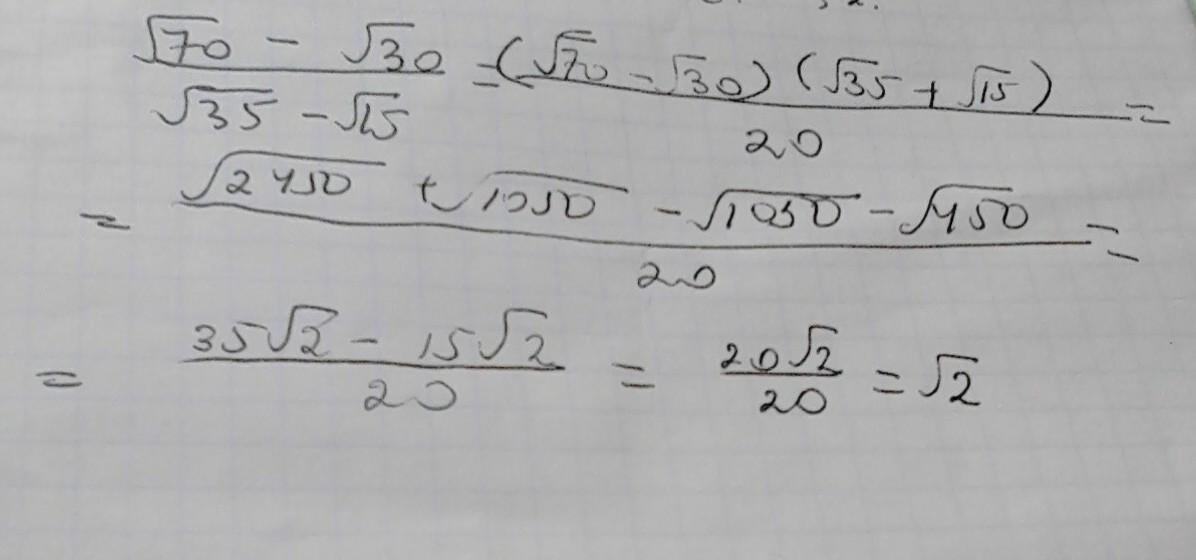 (√70 − √30)/(√35 − √15) = (√70 − √30)(√35 + √15)/20 =
= (√2450 + √1050 − √1050 − √450)/20 =
= (35√2 − 15√2)/20 = 20√2/20 = √2